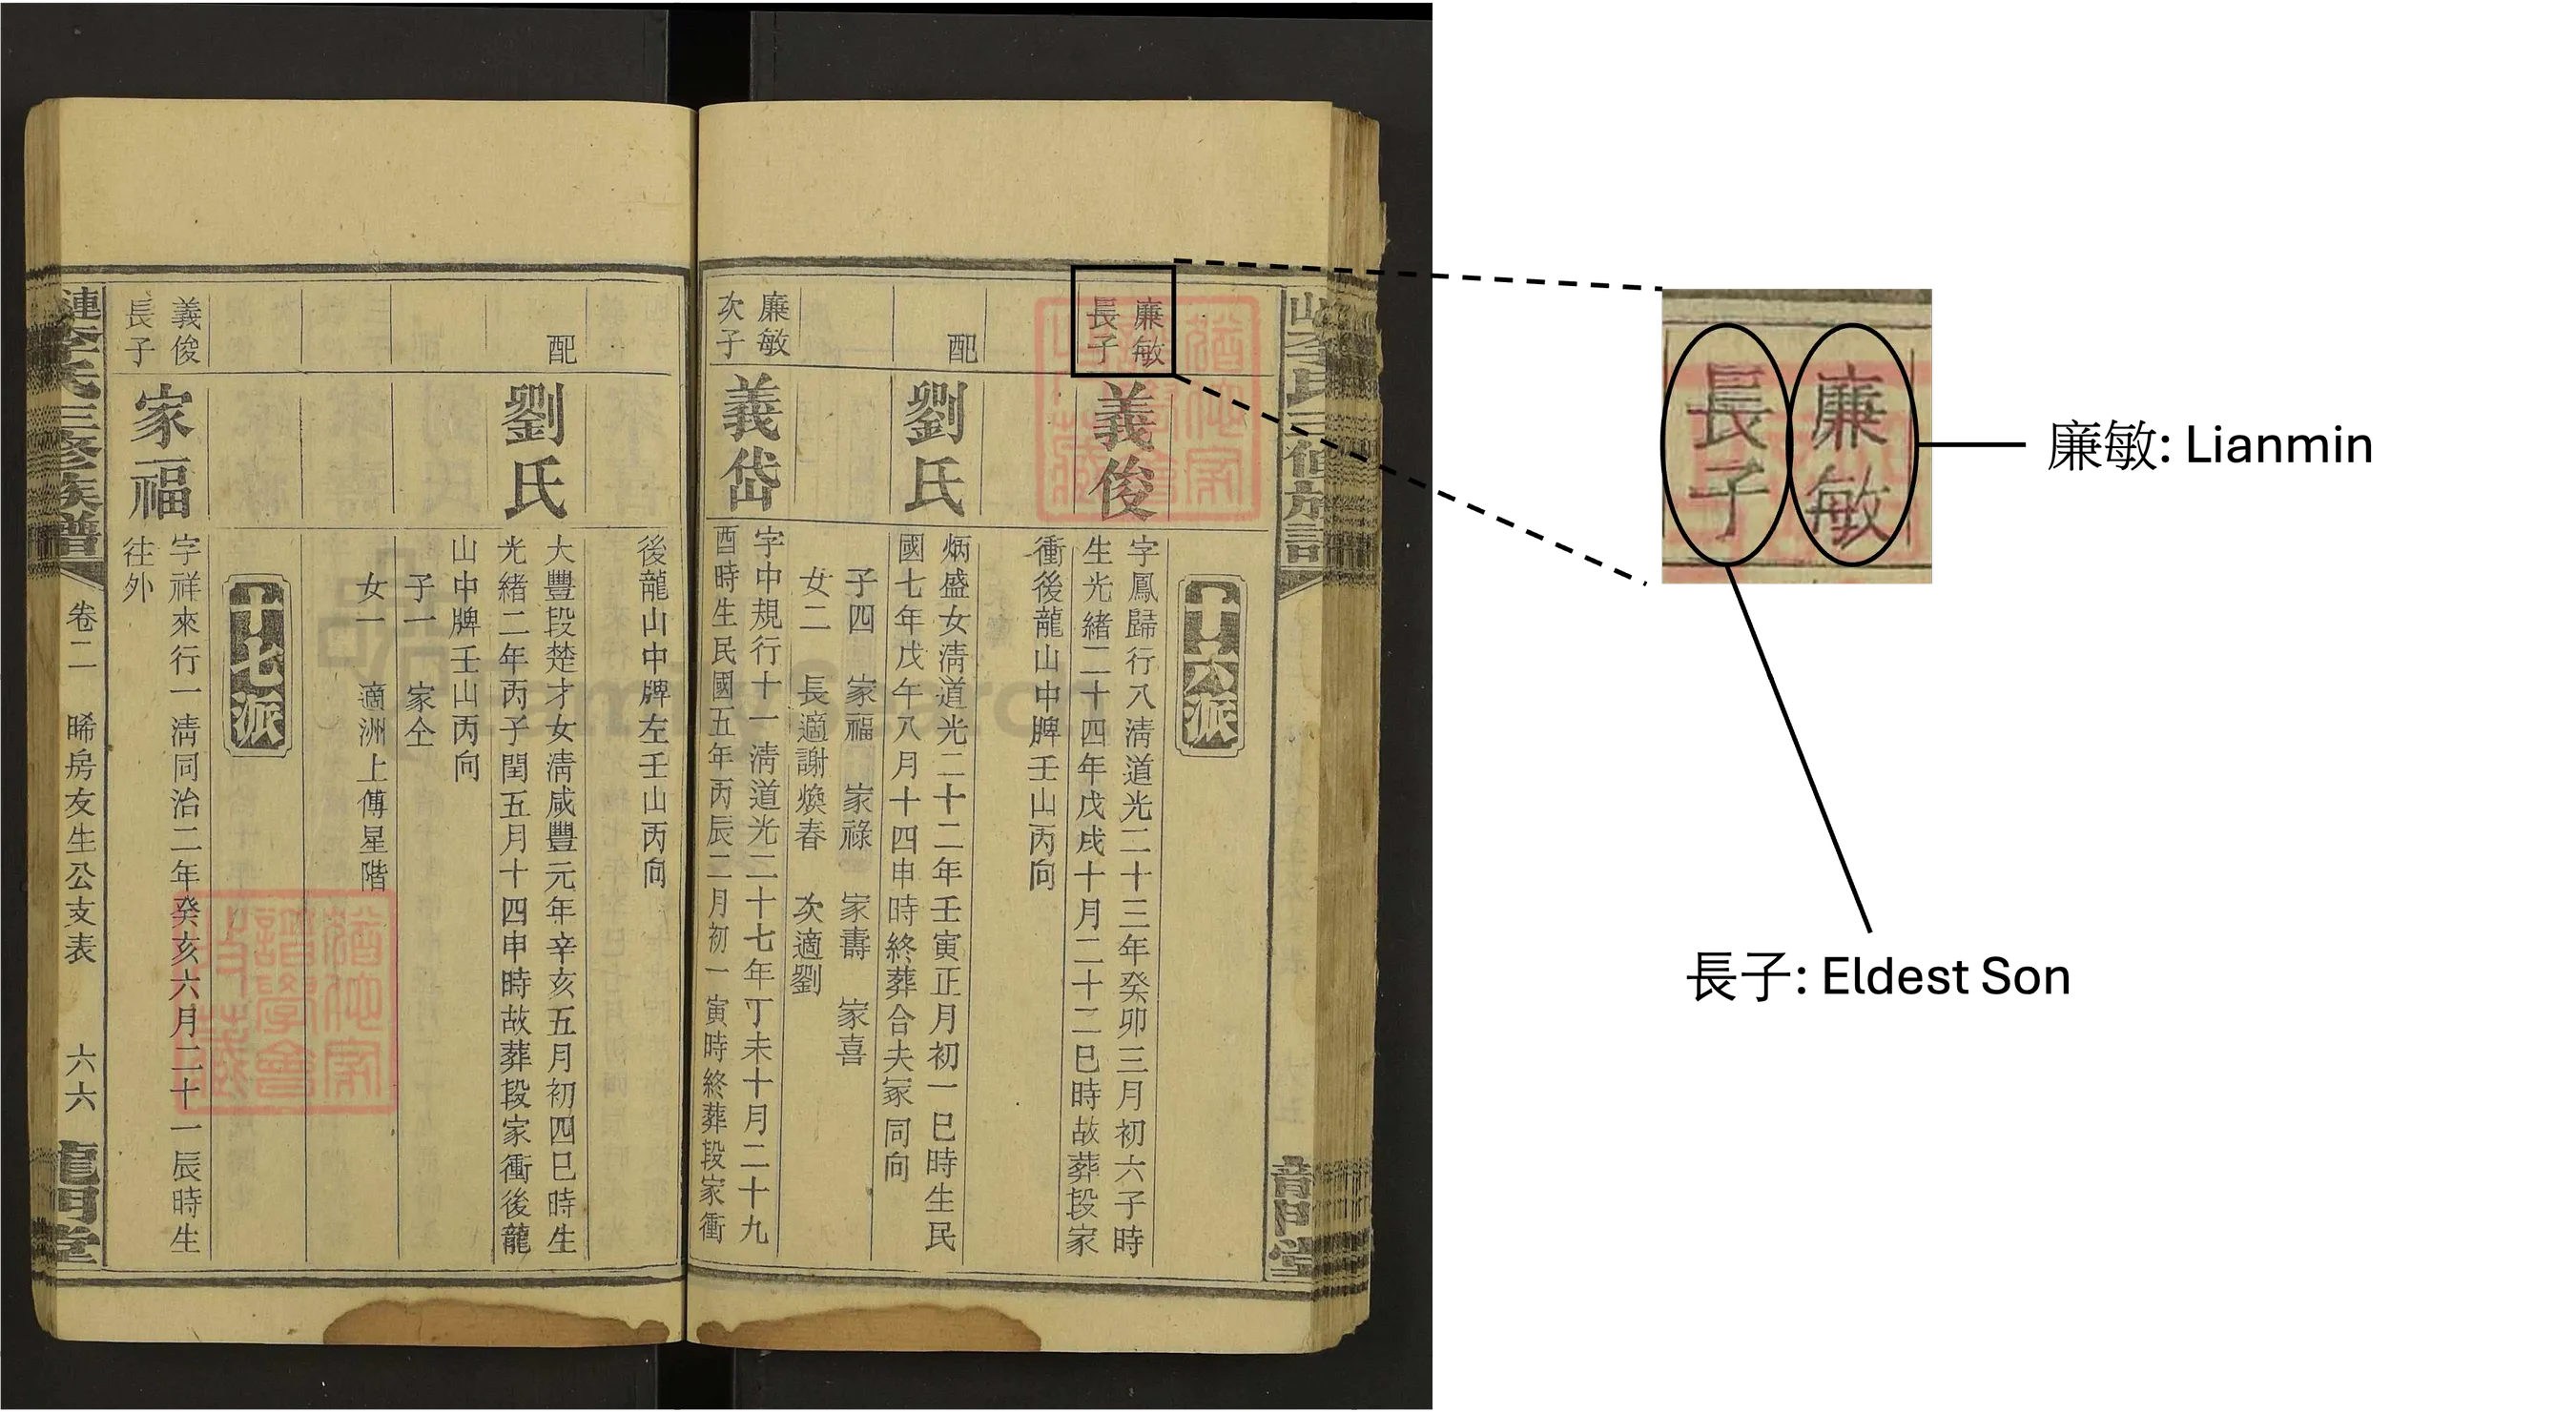 十六派
廉敏
長子
義俊
字鳳歸行八清道光二十三年癸卯三月初六子時
生光緒二十四年戊戌十月二十二巳時故葬段家
衝後龍山中牌壬山丙向
配
劉氏
炳盛女清道光二十二年壬寅正月初一巳時生民
國七年戊午八月十四申時終葬合夫冢同向
子四 家福 家祿 家壽 家喜
女二 長適謝煥春 次適劉
廉敏
次子
義岱
字中規行十一清道光二十七年丁未十月二十九
酉時生民國五年丙辰二月初一寅時終葬段家衝
後龍山中牌左壬山丙向
配
劉氏
大豐段楚才女清咸豐元年辛亥五月初四巳時生
光緒二年丙子閏五月十四申時故葬段家衝後龍
山中牌壬山丙向
子一 家仝
女一 適洲上傅星階
十七派
義俊
長子
家福
字祥來行一清同治二年癸亥六月二十一辰時生
往外
漣李氏三修族譜
卷二 晞房友生公支表 六六
龍門堂
FamilySearch
廉敏
長子
廉敏: Lianmin
長子: Eldest Son